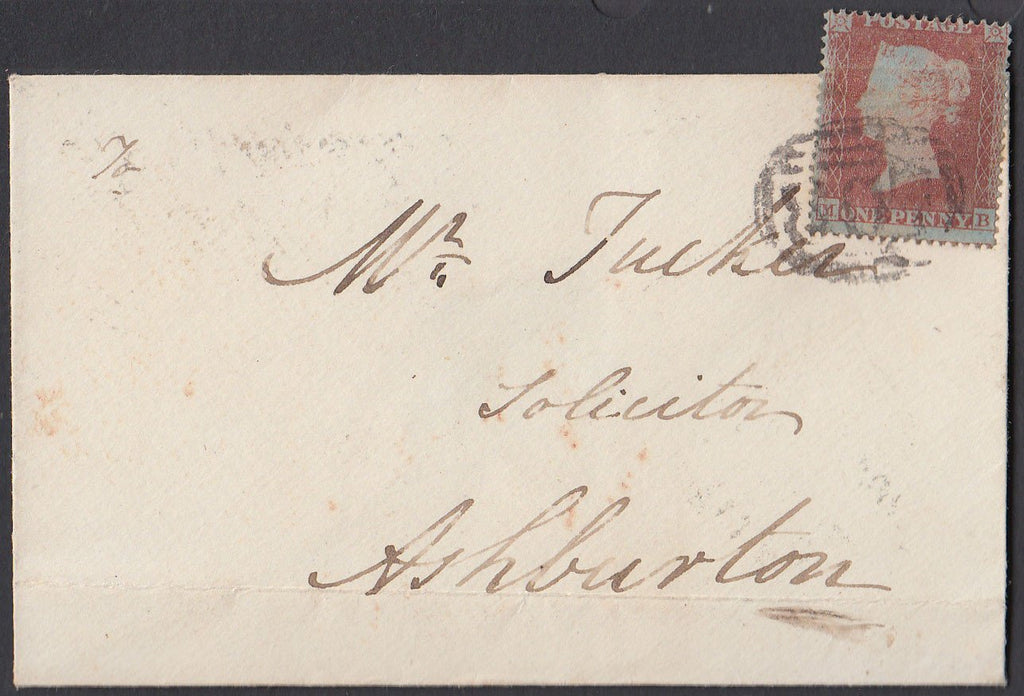 POSTAGE
M ONE PENNY. B
To
Mr. Tucker
Solicitor
Ashburton